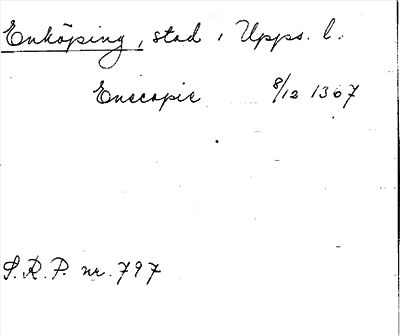 Enköping, stad, Upps. l.
Enecopie 8/12 1367
S.R.P. nr. 797